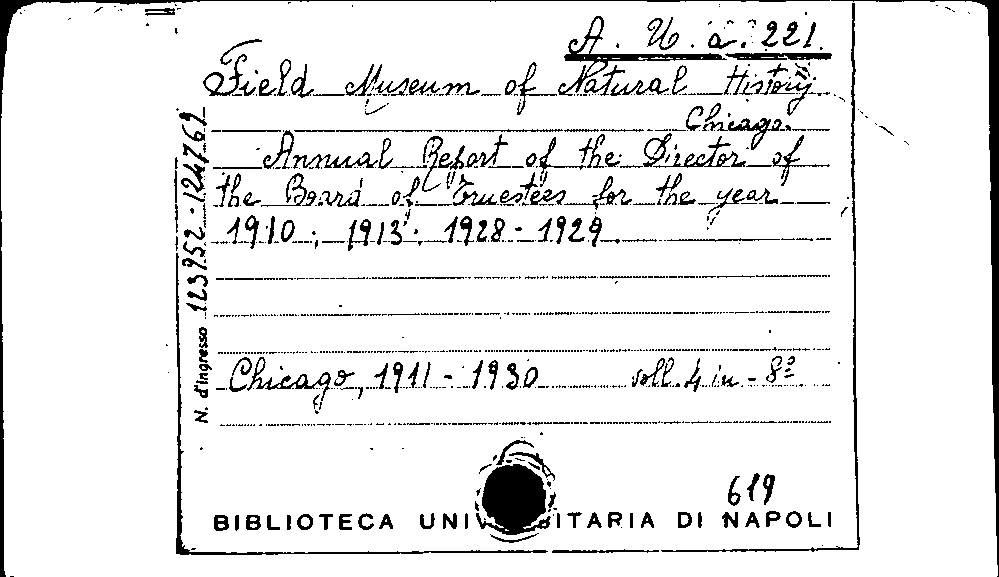 A. U. a. 221.
Field Museum of Natural History
Chicago.
Annual Report of the Director of
the Board of Truestees for the year
1910; 1913; 1928-1929.
Chicago, 1911-1930 voll. 4 in-8º
N. d'Ingresso 123952-124769
619
BIBLIOTECA UNIVERSITARIA DI NAPOLI